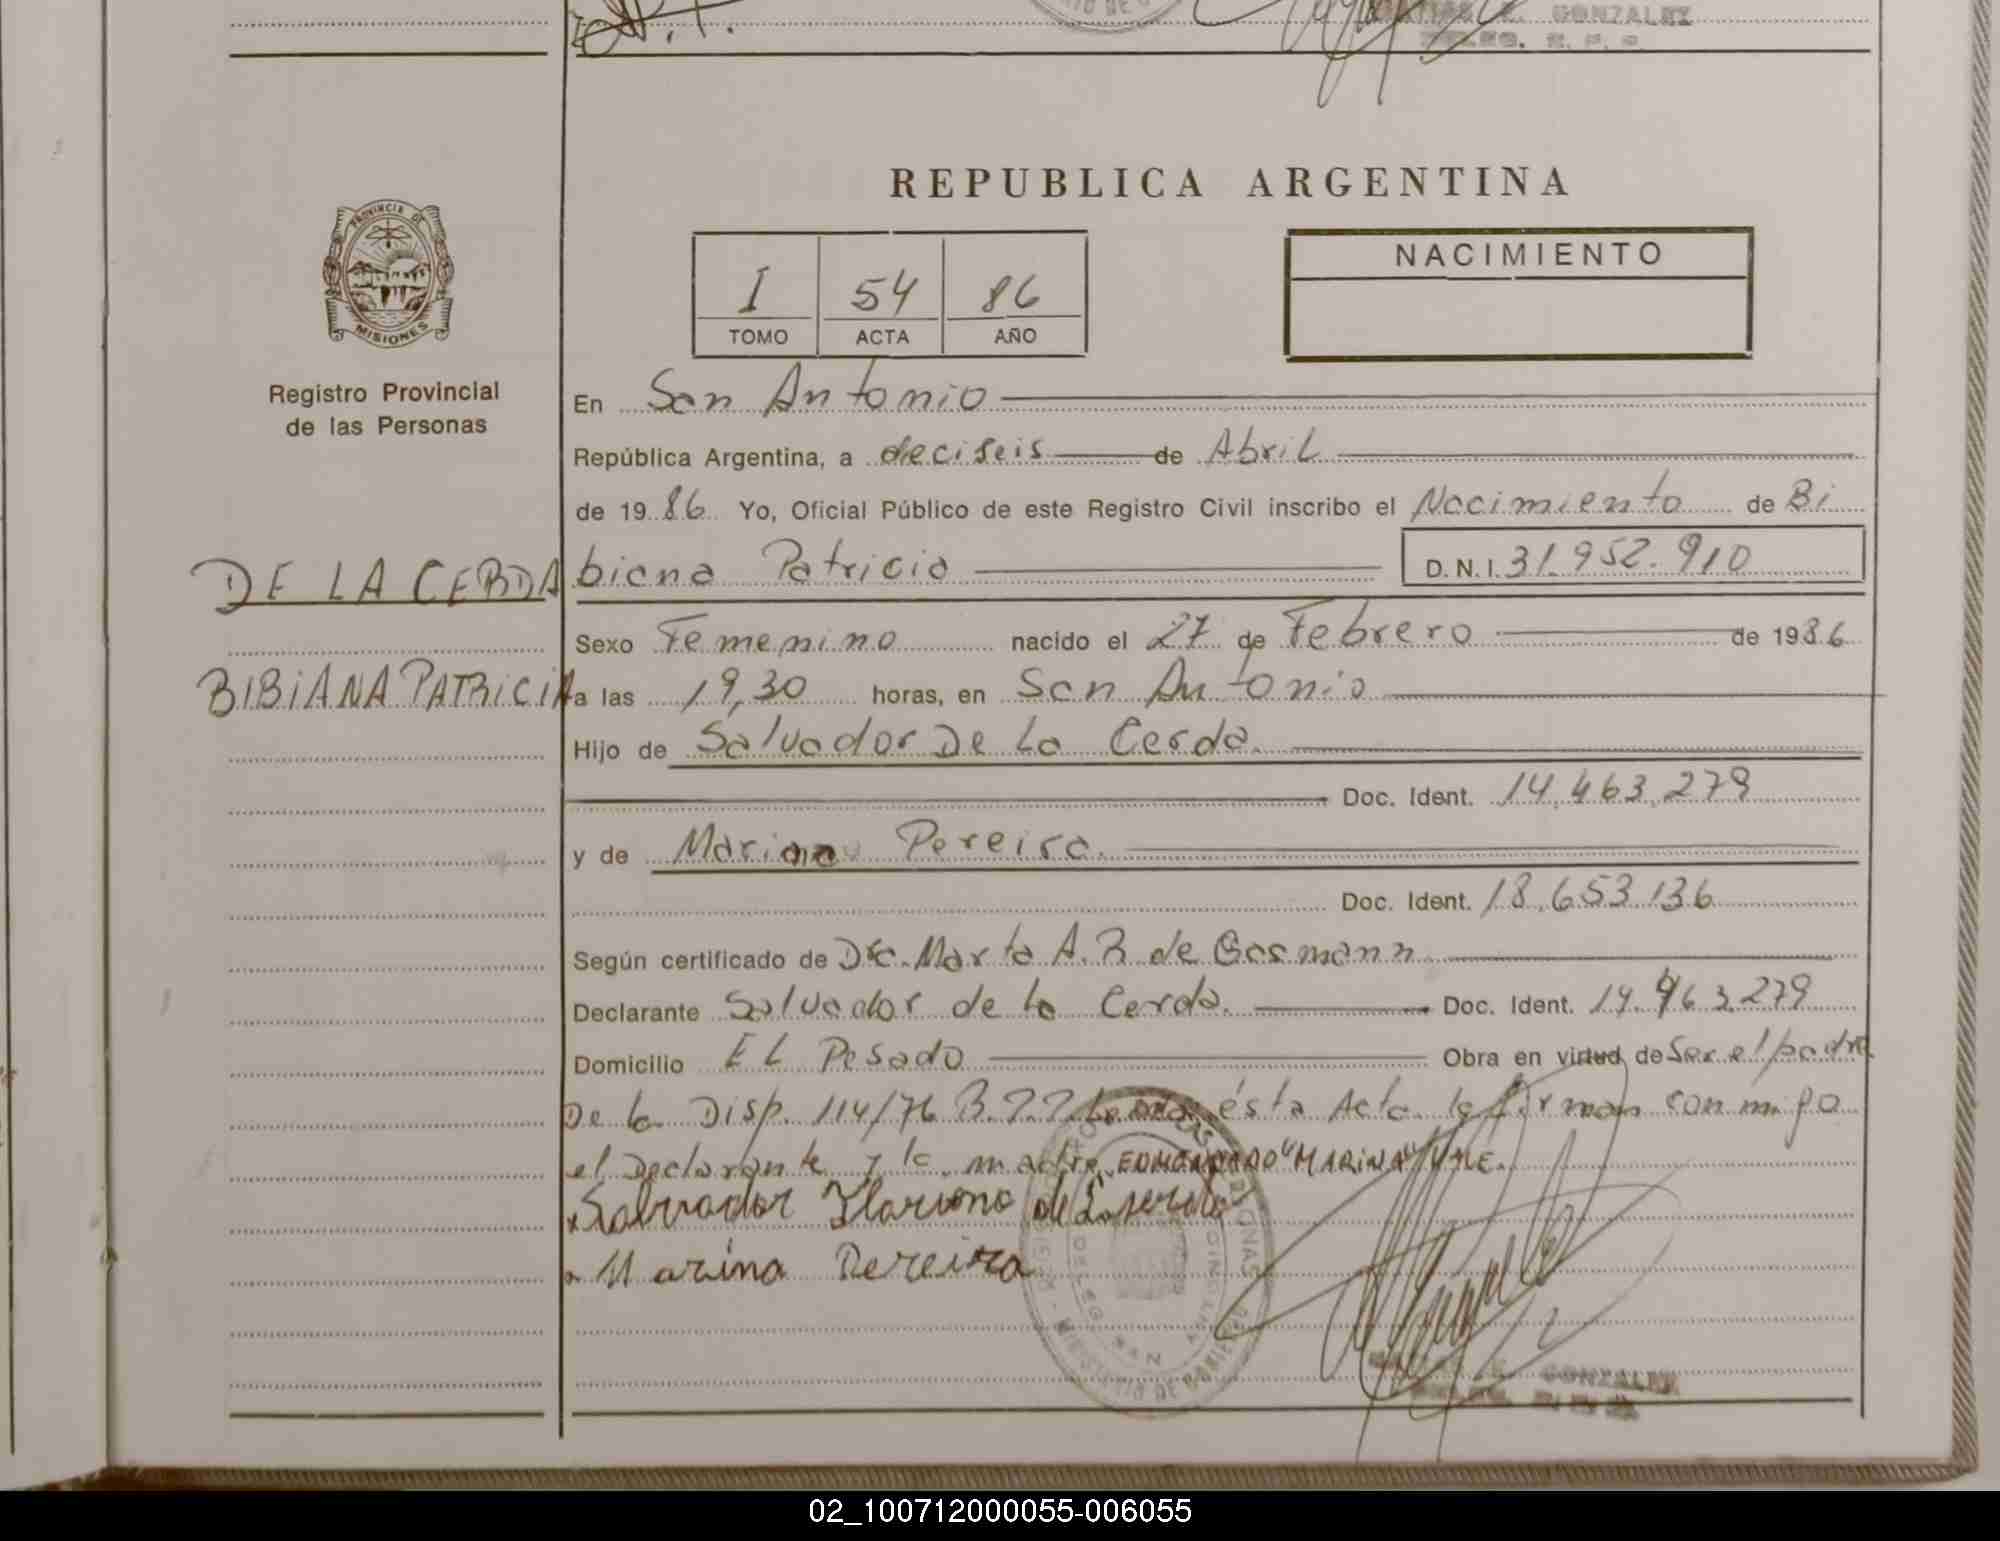 GONZALEZ
REPUBLICA ARGENTINA
PROVINCIA DE
MISIONES
NACIMIENTO
I 54 86
TOMO ACTA AÑO
Registro Provincial
de las Personas
En San Antonio
República Argentina, a deciseis de Abril
de 1986 Yo, Oficial Público de este Registro Civil inscribo el Nacimiento de Bi
DE LA CERDA
biana Patricia D.N.I. 31.952.910
Sexo Femenino nacido el 27 de Febrero de 1986
BIBIANA PATRICIA
a las 19,30 horas, en San Antonio
Hijo de Salvador De La Cerda.
Doc. Ident. 14.463.279
y de Marina Pereira.
Doc. Ident. 18.653.136
Según certificado de Dra. Marta A. R de Gasmann
Declarante Salvador de la Cerda. Doc. Ident. 14.463.279
Domicilio EL Pesado Obra en virtud de Ser el padre
De la Disp. 114/76 R.P.P. Leida ésta Acta la firman conmigo
el Declarante y la madre. ENMENDADO "MARINA" VALE.
x Salvador Ilariono de Laserda
x Marina Pereira
GONZALEZ
02_100712000055-006055